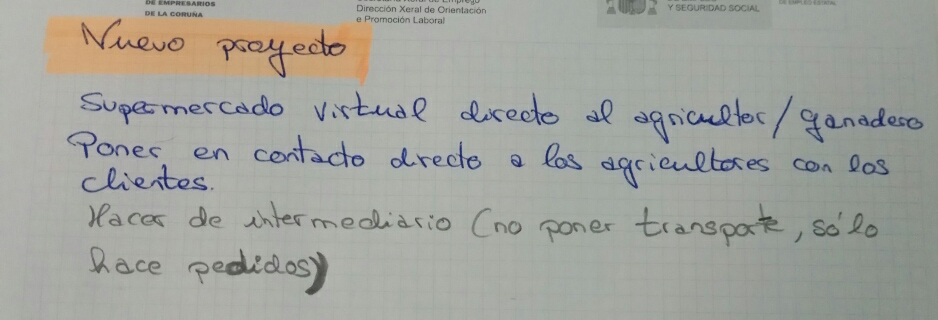 DE EMPRESARIOS
DE LA CORUÑA
Dirección Xeral de Orientación
e Promoción Laboral
Y SEGURIDAD SOCIAL
Nuevo proyecto
Supermercado virtual directo al agricultor/ganadero
Poner en contacto directo a los agricultores con los
clientes.
Hacer de intermediario (no poner transporte, sólo
hace pedidos)